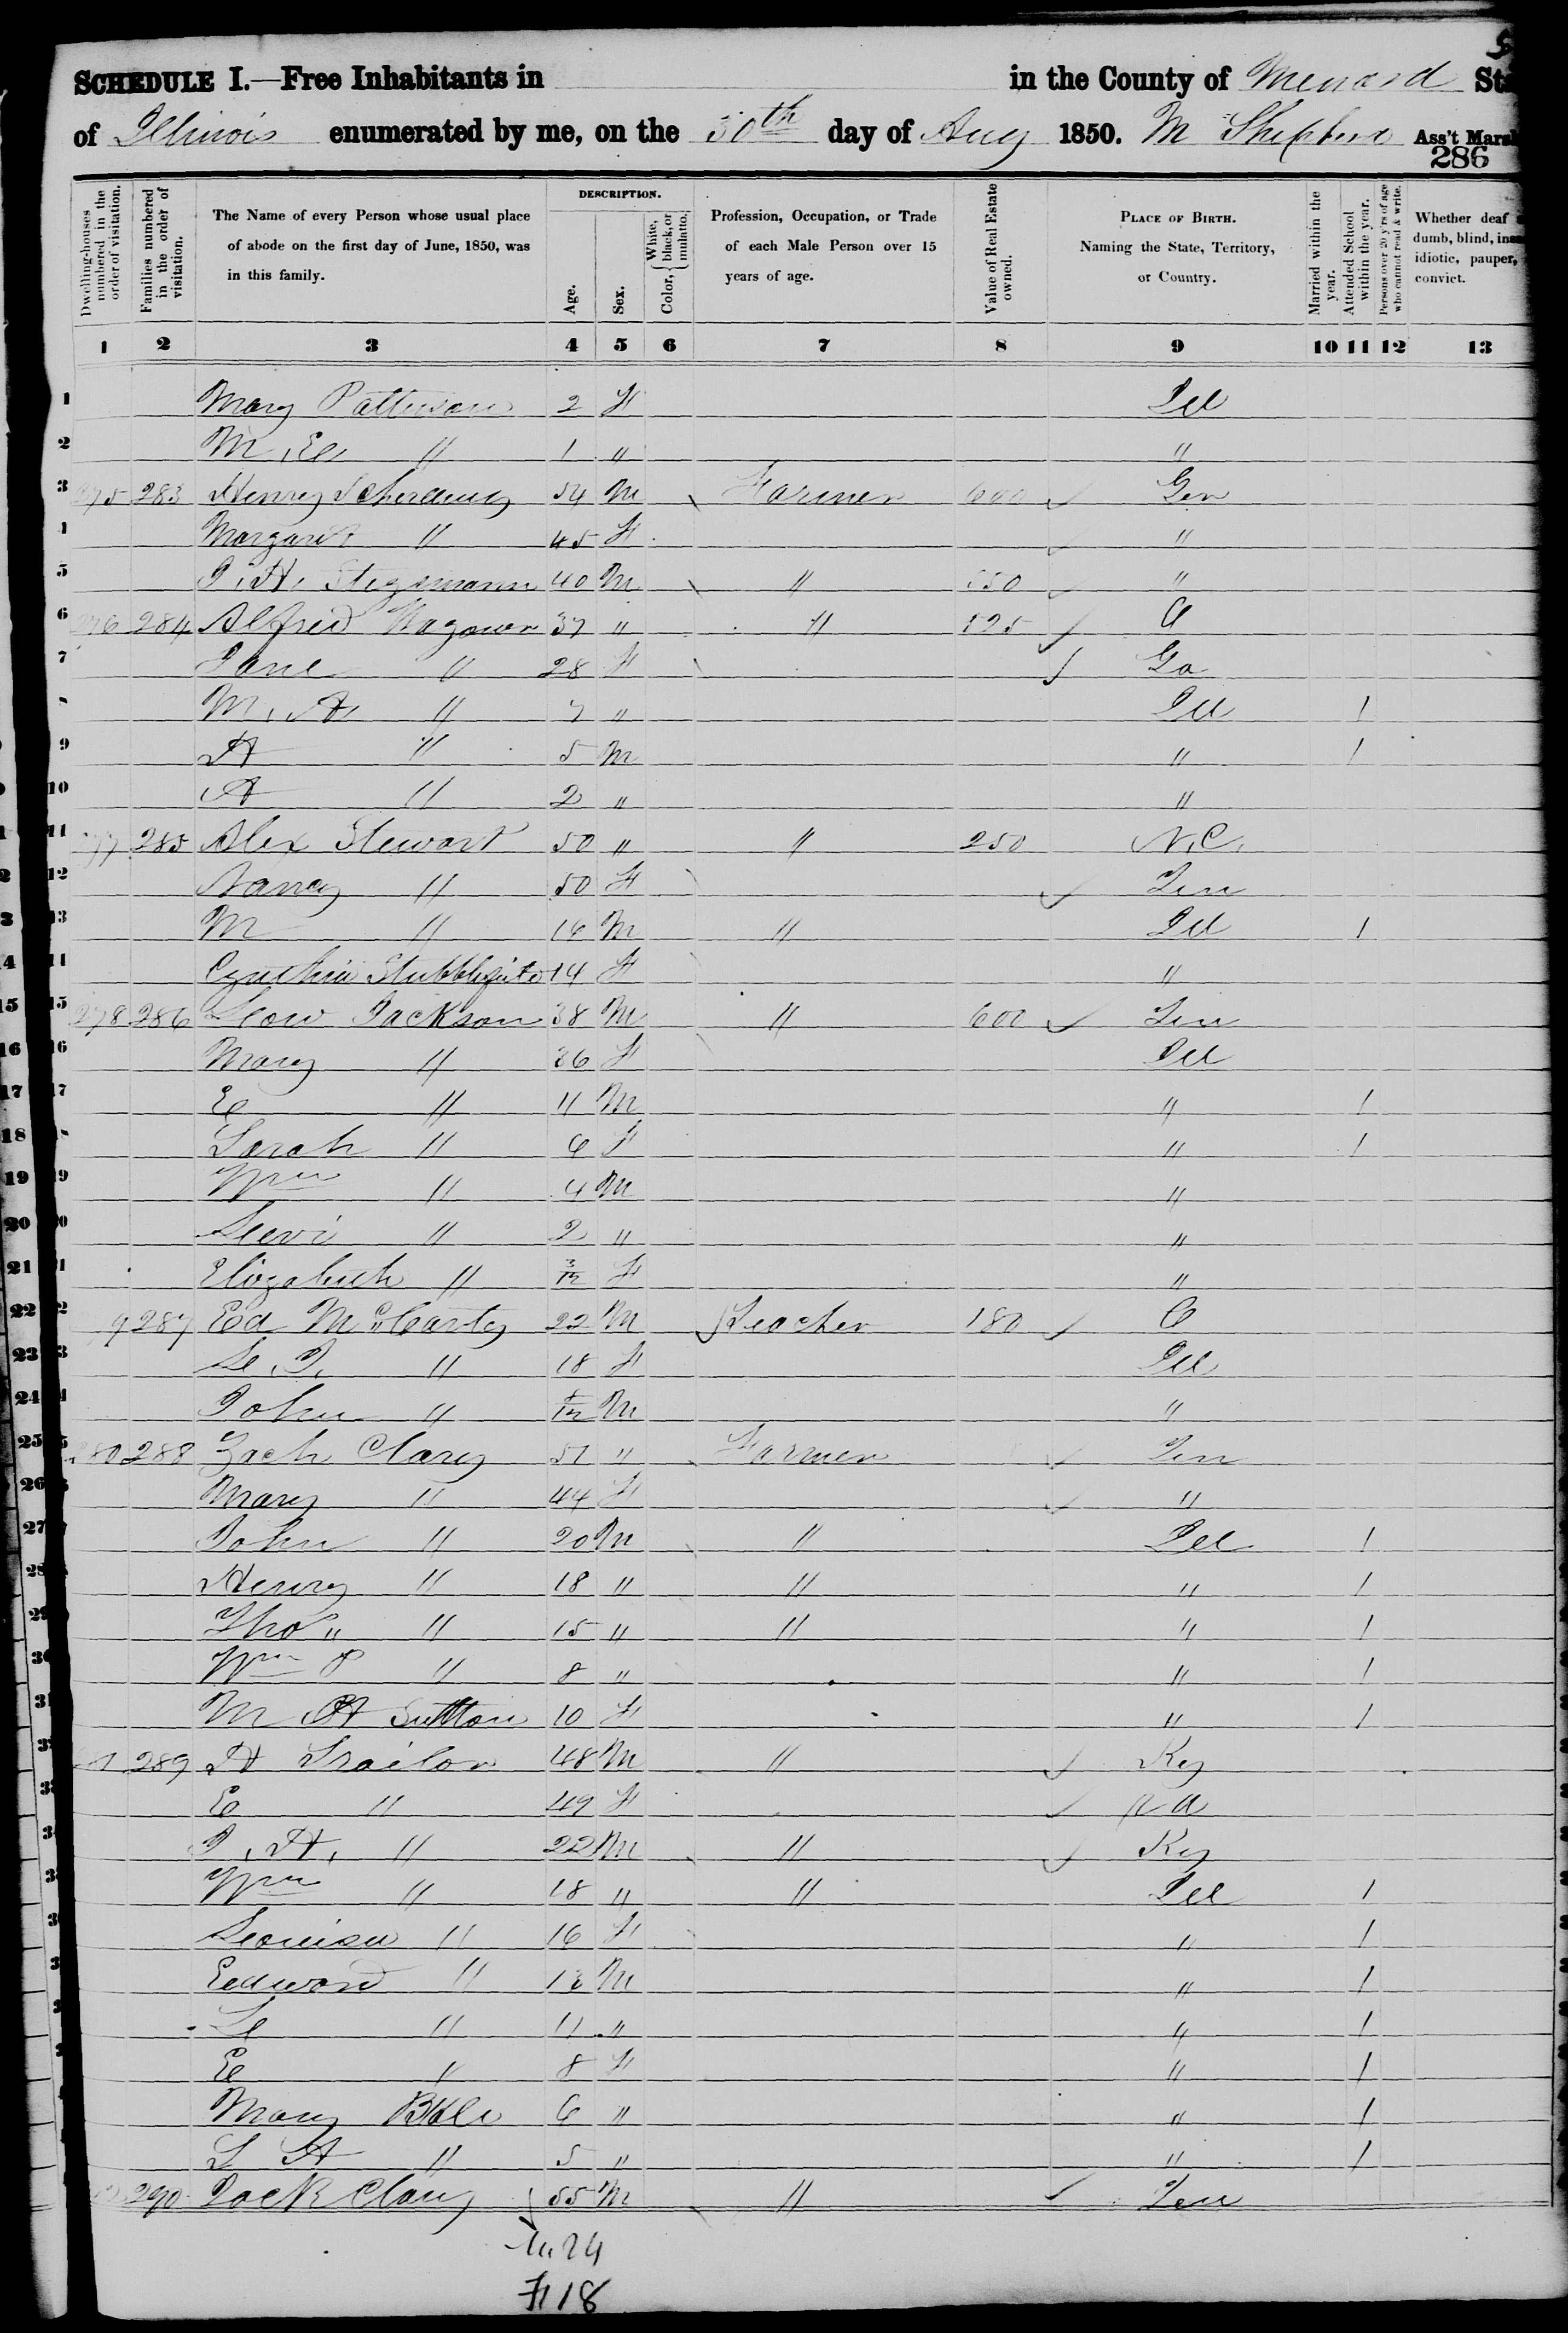 SCHEDULE I.—Free Inhabitants in in the County of Menard
of Illinois enumerated by me, on the 30th day of Aug 1850. M Shepherd Ass't
286
Dwelling-houses numbered in the order of visitation.
Families numbered in the order of visitation.
The Name of every Person whose usual place of abode on the first day of June, 1850, was in this family.
DESCRIPTION.
Age.
Sex.
Color, { White, black, or mulatto.
Profession, Occupation, or Trade of each Male Person over 15 years of age.
Value of Real Estate owned.
PLACE OF BIRTH. Naming the State, Territory, or Country.
Married within the year.
Attended School within the year.
Persons over 20 y'rs of age who cannot read & write.
Whether deaf dumb, blind, idiotic, pauper, convict.
1 2 3 4 5 6 7 8 9 10 11 12 13
1 Mary Patterson 2 F Ill
2 M. E. " 1 " "
3 283 Henry 54 M Farmer 600 Ger
Margaret " 45 F "
5 J. H. Stegemann 40 M " "
6 284 Alfred 37 " " 525 O
7 Jane " 28 F Ga
M. A. " 7 " Ill 1
9 A " 5 M " 1
10 A " 2 " "
11 285 Alex Stewart 50 " " 250 N.C.
12 Nancy " 50 F Ten
13 M " 16 M " Ill 1
Cynthia 14 F "
15 278 286 Jackson 38 M " 600 Ten
16 Mary " 36 F Ill
17 E " 11 M " 1
18 Sarah " 6 F " 1
19 Wm " 4 M "
20 Levi " 2 " "
21 Elizabeth " 3/12 F "
22 287 Ed McCarty 22 M Teacher 180 O
23 " 18 F Ill
24 John " M "
25 280 288 Zach Clary 51 " Farmer Ten
26 Mary " 44 F "
27 John " 20 M " Ill 1
28 Henry " 18 " " " 1
29 Tho" " 15 " " " 1
30 Wm P " 8 " " 1
31 M A Sutton 10 F " 1
289 H Trailor 48 M " Ky
E " 49 F Va
J. H. " 22 M " Ky
Wm " 18 " " Ill 1
Louisa " 16 F " 1
Edward " 13 M " 1
L " 11 " " 1
E " 8 F " 1
Mary 6 " " 1
S A " 5 " " 1
290 Jack Clary 55 M " Ten
M 24
F 18